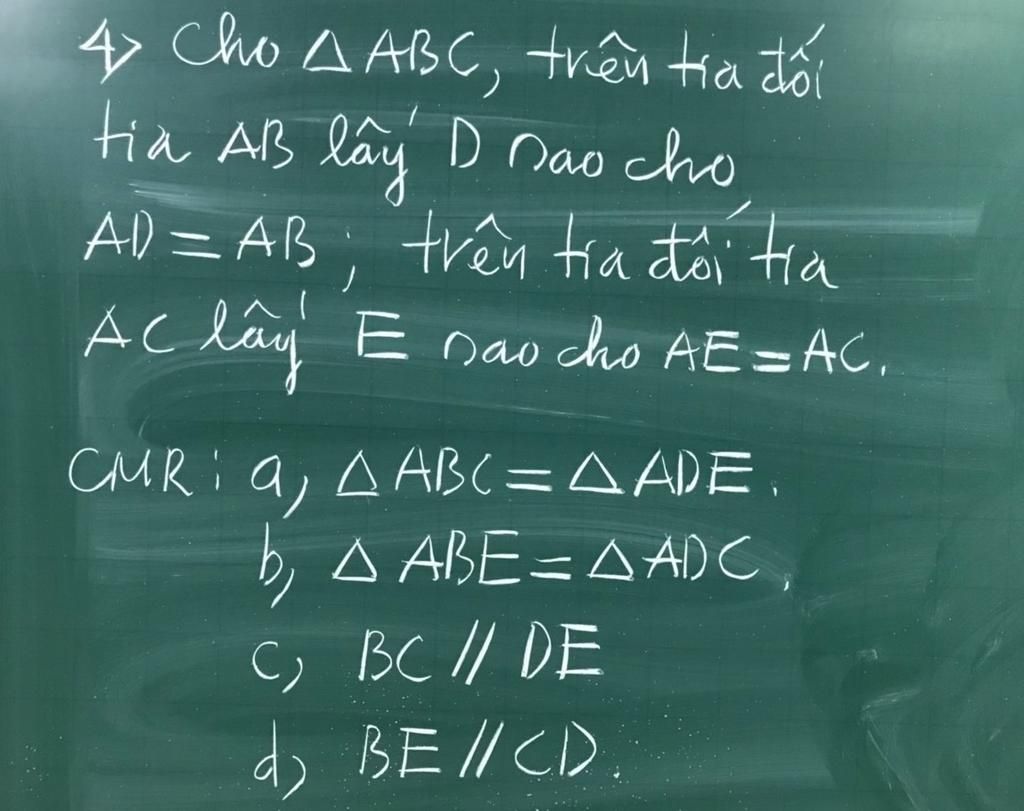 4> Cho △ABC, trên tia đối
tia AB lấy D sao cho
AD = AB ; trên tia đối tia
AC lấy E sao cho AE = AC.
CMR : a, △ABC = △ADE.
b, △ABE = △ADC.
c, BC // DE
d, BE // CD.